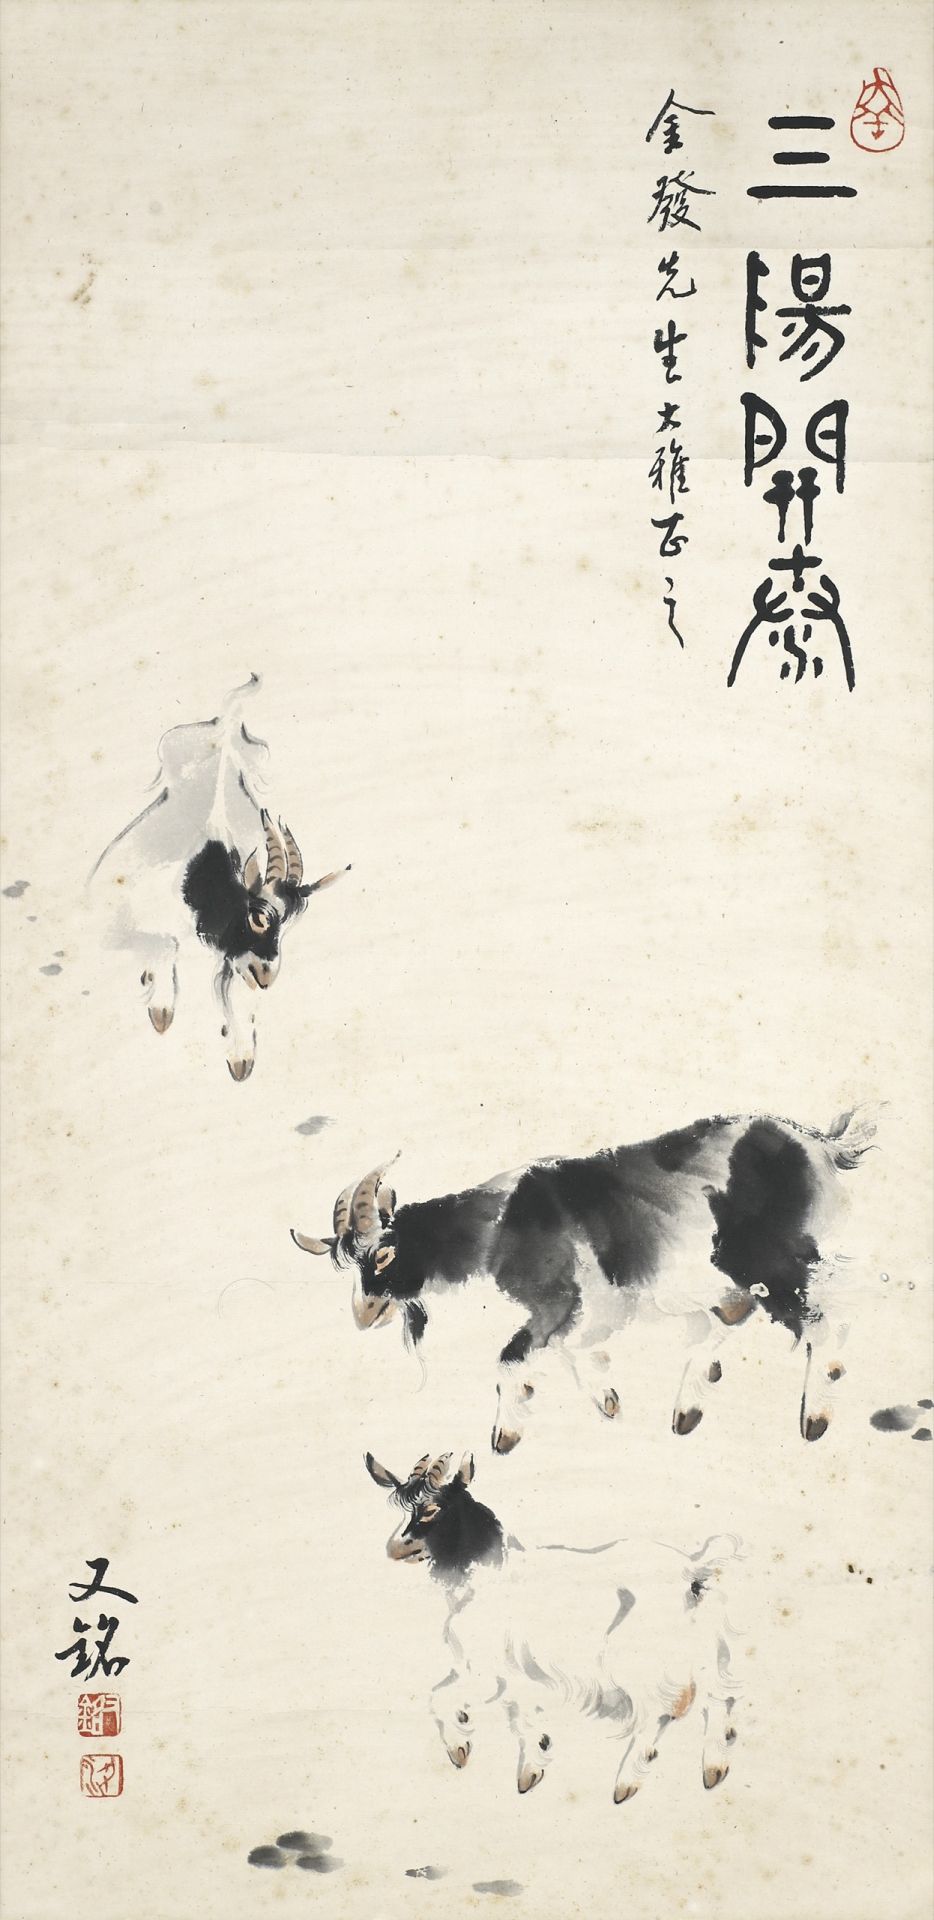 三陽開泰
金發先生大雅正之
又銘